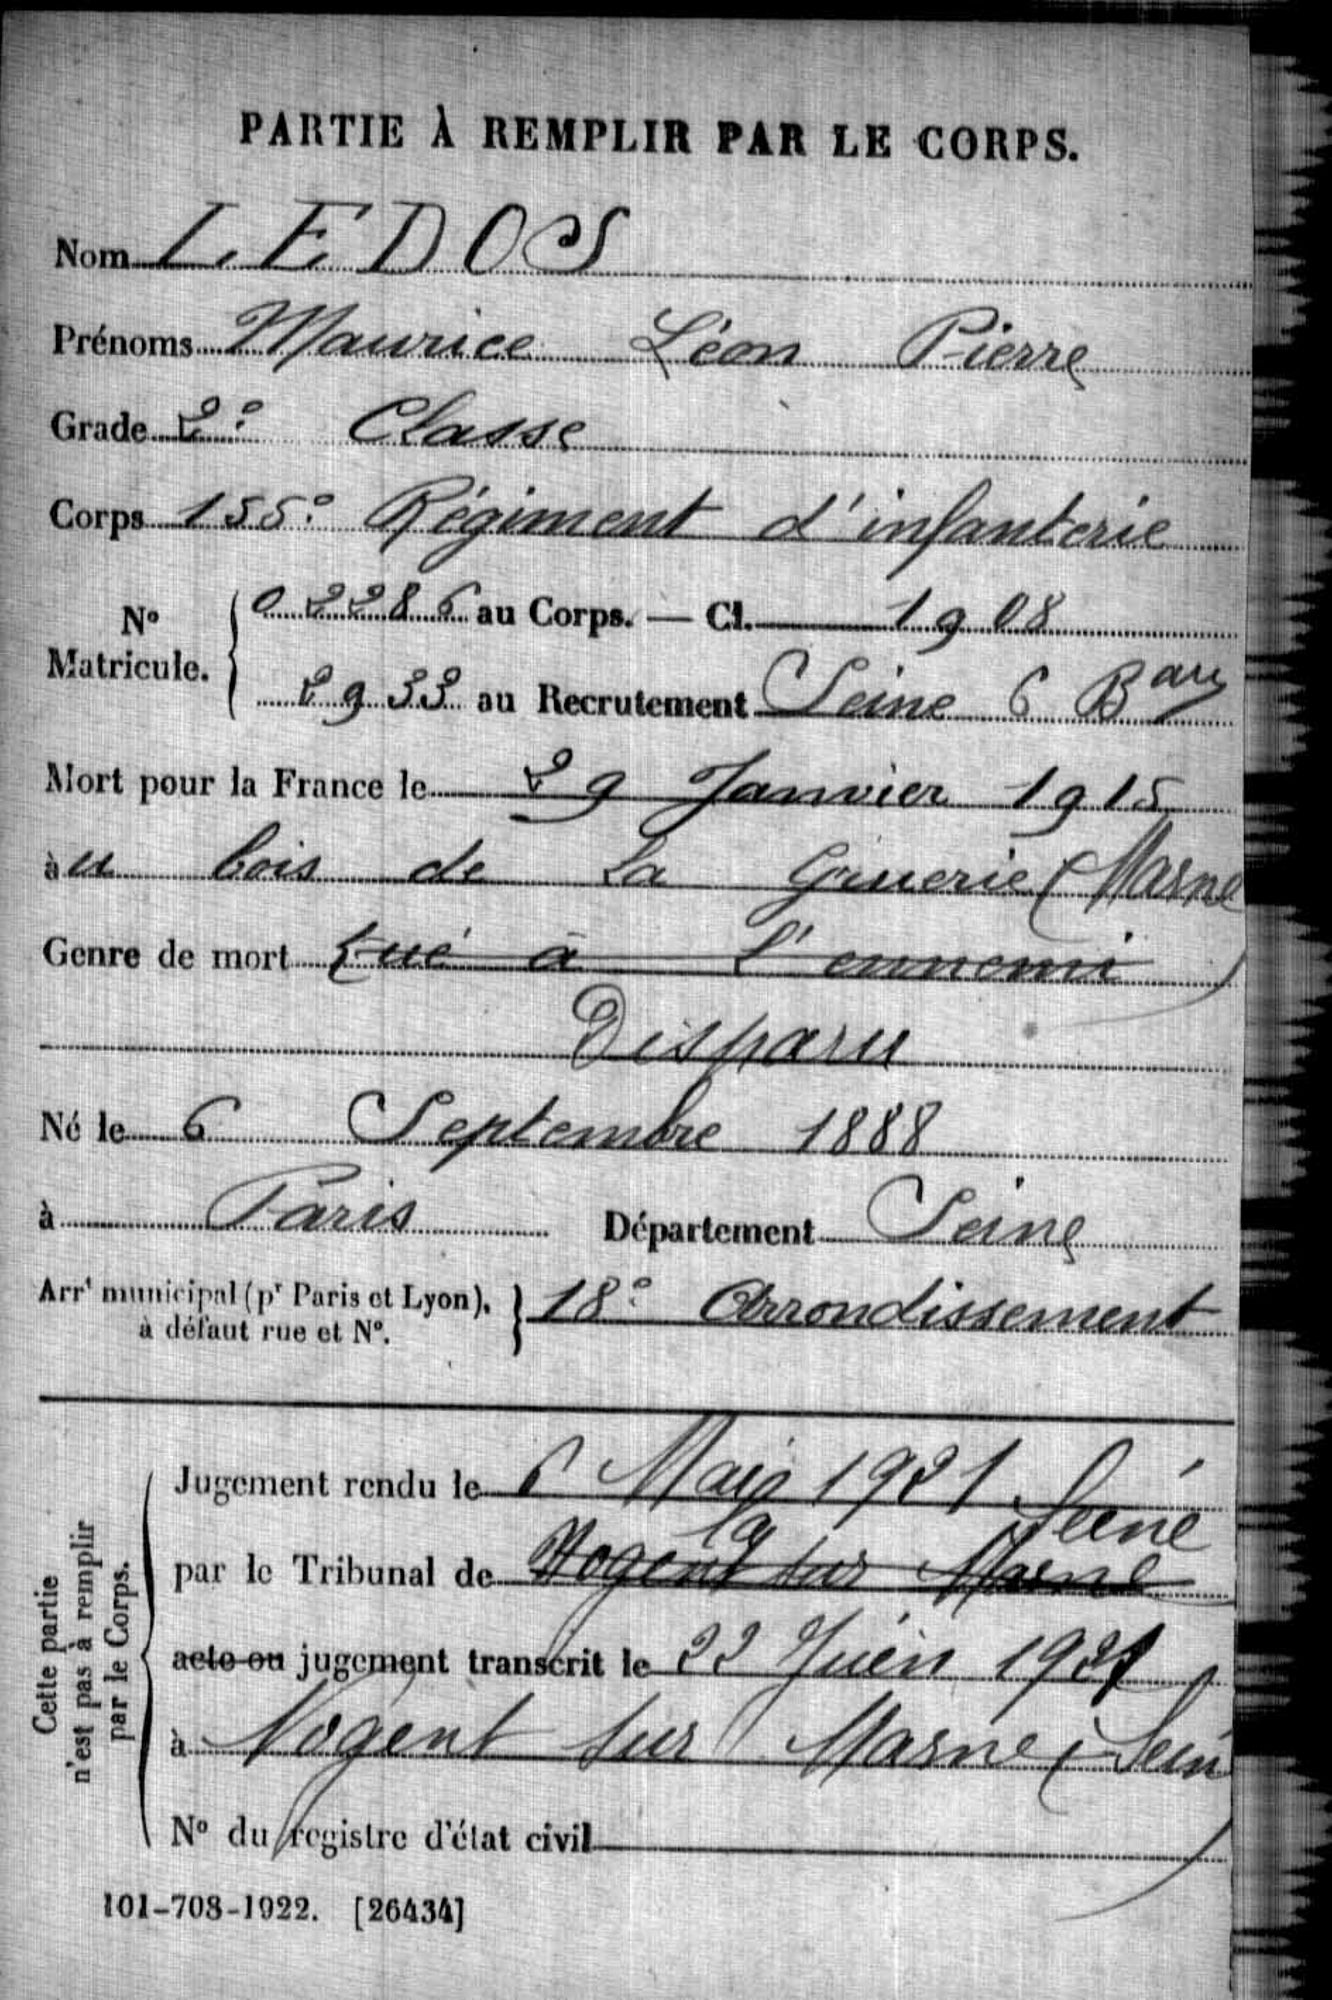 PARTIE À REMPLIR PAR LE CORPS.
Nom LEDOS
Prénoms Maurice Léon Pierre
Grade 2e Classe
Corps 155e Régiment d'infanterie
No Matricule. { 02286 au Corps. — Cl. 1908
2933 au Recrutement Seine 6 Bau
Mort pour la France le 29 Janvier 1915
àu bois de la Gruerie (Marne)
Genre de mort tué à l'ennemi
Disparu
Né le 6 Septembre 1888
à Paris Département Seine
Arrt municipal (pr Paris et Lyon), } 18e Arrondissement
à défaut rue et No.
Cette partie
n'est pas à remplir
par le Corps.
Jugement rendu le 6 Mai 1921
la Seine
par le Tribunal de Nogent sur Marne
acte ou jugement transcrit le 22 Juin 1921
à Nogent sur Marne (Sein)
No du registre d'état civil
101-708-1922. [26434]